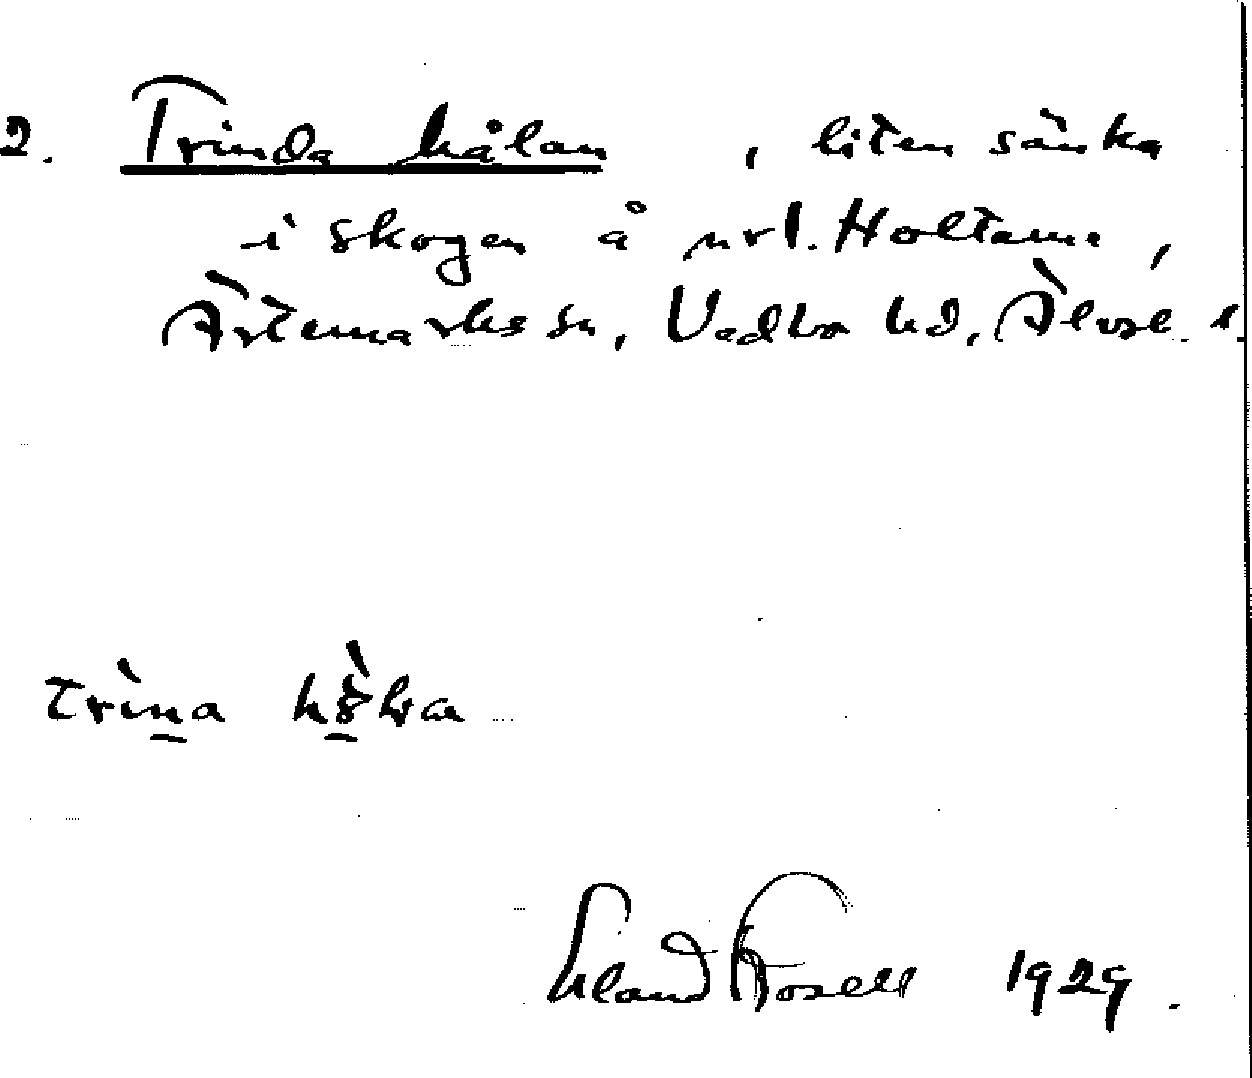 2. Trinda hålan, liten sänka
i skogen å nrl. Holtane,
Ärtemarks sn, Vedbo hd, Älvsb. l.
trìna
Erland Rosell 1929.